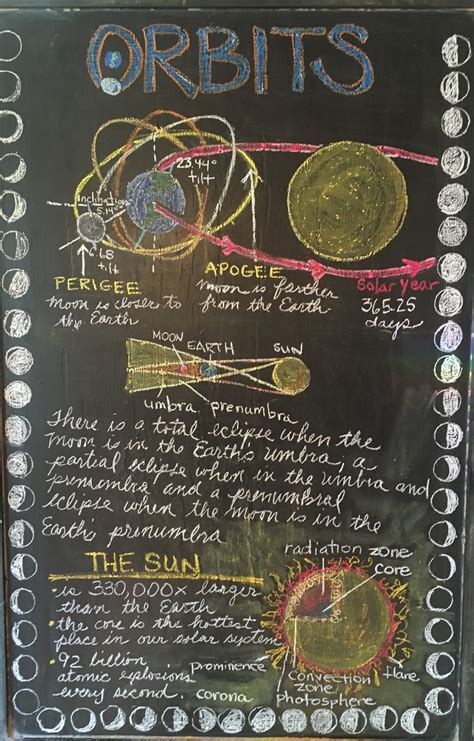 ORBITS
23.44°
tilt
inclination
5.14°
6.68
tilt
PERIGEE
moon is closer to
the Earth
APOGEE
moon is farther
from the Earth
Solar Year
365.25
days
MOON
EARTH
SUN
umbra
prenumbra
There is a total eclipse when the
moon is in the Earth's umbra; a
partial eclipse when in the umbra and
prenumbra and a prenumbral
eclipse when the moon is in the
Earth's prenumbra
THE SUN
• is 330,000x larger
than the Earth
• the core is the hottest
place in our solar system
• 92 billion
atomic explosions
every second.
radiation zone
core
prominence
convection
zone
flare
corona
photosphere